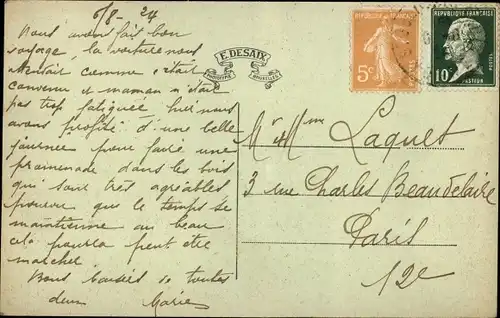 6/8 - 24
Nous avons fait bon
voyage, la voiture nous
attendait comme c'était
convenu et maman n'était
pas trop fatiguée hier nous
avons profité d'une belle
journée pour faire une
promenade dans les bois
qui sont très agréables
pourvu que le temps se
maintienne au beau
cela pourra peut être
marcher
Bons baisers de toutes
deux Marie
E. DESAIX
BRUXELLES
5c
RÉPUBLIQUE FRANÇAISE
10c
PASTEUR
POSTES
Mr & Mme Laquet
3 rue Charles Beaudelaire
Paris
12e